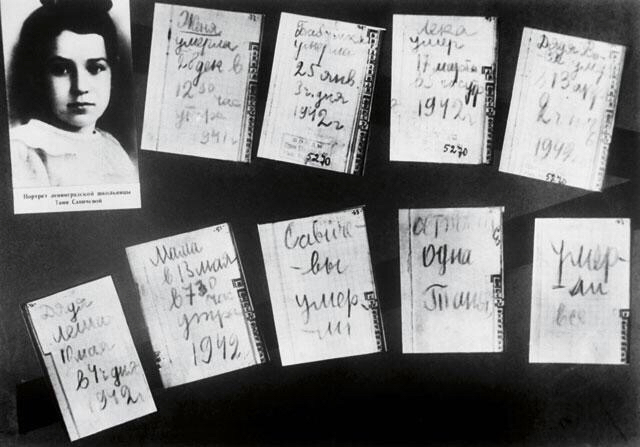 Портрет ленинградской школьницы
Тани Савичевой
Женя
умерла
28 дек в
12 30 час
утра
1941 г
Бабушка
умерла
25 янв.
3 ч. дня
1942 г
5270
Лека
умер
17 марта
1942 г
5270
Дядя Ва
ся ум
13 апр
2 ч
1942
5270
Дядя
Леша
10 мая
в 4 ч дня
1942 г
Мама
в 13 мая
в 7 30 час
утра
1942
Савиче-
-вы
умер-
-ли
одна
Таня
умер-
ли
все